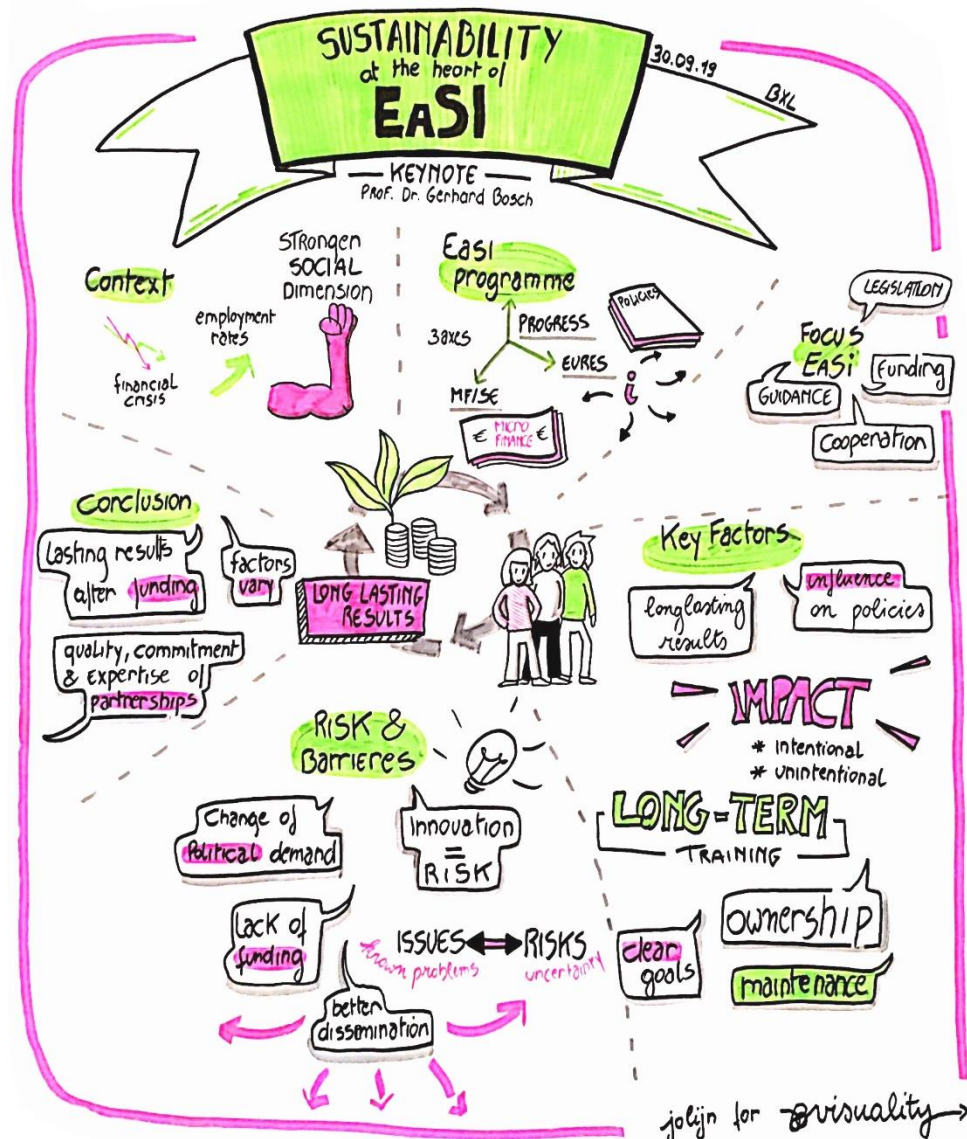 SUSTAINABILITY
at the heart of
EaSI
30.09.19
BXL
KEYNOTE
Prof. Dr. Gerhard Bosch
Context
financial
crisis
employment
rates
STRONGER
SOCIAL
DIMENSION
EaSI
programme
3 axes
PROGRESS
EURES
MF/SE
POLICIES
i
€ MICRO €
FINANCE
FOCUS
EASi
LEGISLATION
Funding
GUIDANCE
Cooperation
Conclusion
Lasting results
after funding
factors
vary
quality, commitment
& Expertise of
partnerships
LONG LASTING
RESULTS
Key Factors
long lasting
results
influence
on policies
IMPACT
* intentional
* unintentional
LONG-TERM
TRAINING
ownership
clear
goals
maintenance
RISK &
Barrieres
Change of
Political demand
Innovation
=
RISK
Lack of
funding
ISSUES
known problems
RISKS
uncertainty
better
dissemination
jolijn for visuality